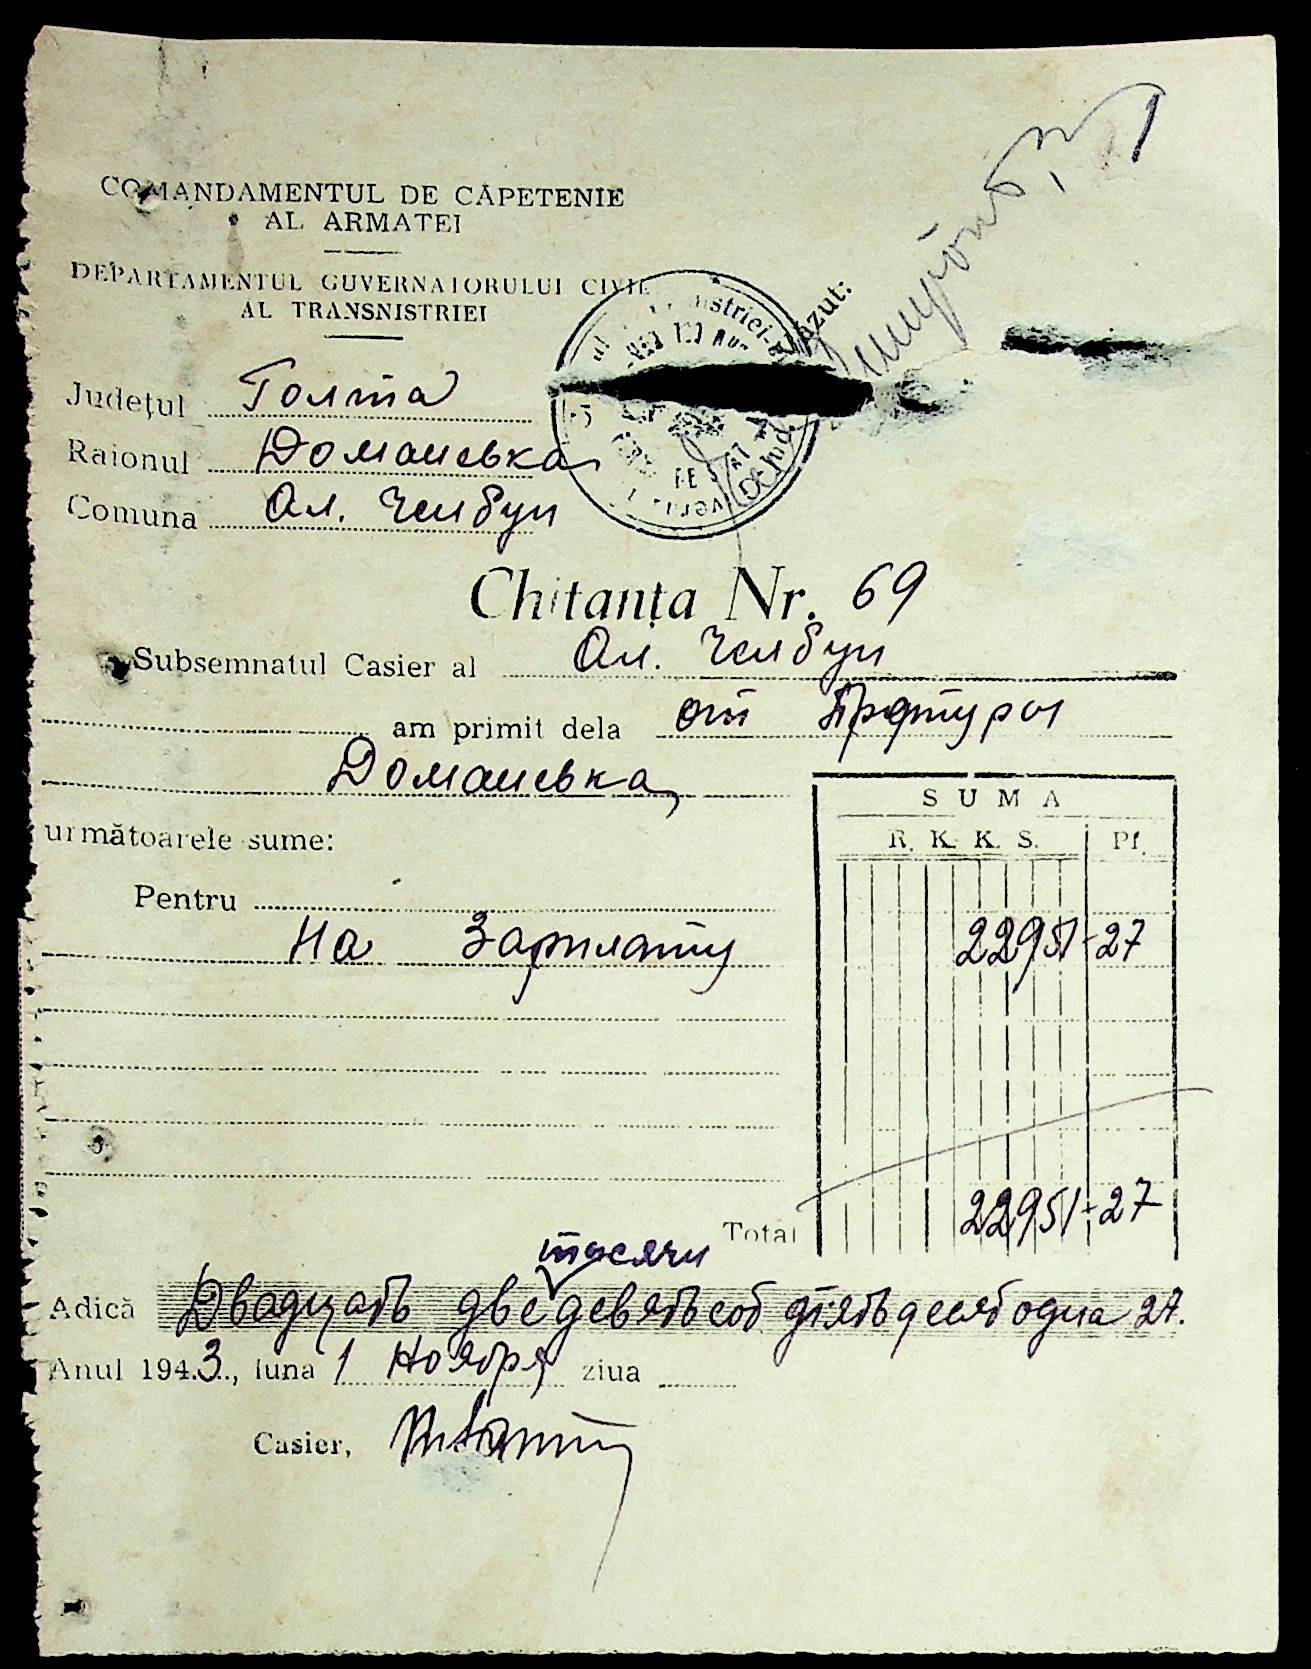 COMANDAMENTUL DE CĂPETENIE
AL ARMATEI
DEPARTAMENTUL GUVERNATORULUI CIVIL
AL TRANSNISTRIEI
Văzut:
Județul Голта
Raionul Доманевка
Comuna Ал. Челбун
Chitanța Nr. 69
Subsemnatul Casier al Ал. Челбун
am primit dela от Претуры
Доманевка
următoarele sume:
SUMA
R. K. K. S. Pf.
Pentru
На Зарплату 22951-27
Total 22951-27
тысячи
Adică Двадцать две девятьсот пятьдесят одна 27.
Anul 1943, luna 1 Ноября ziua
Casier,